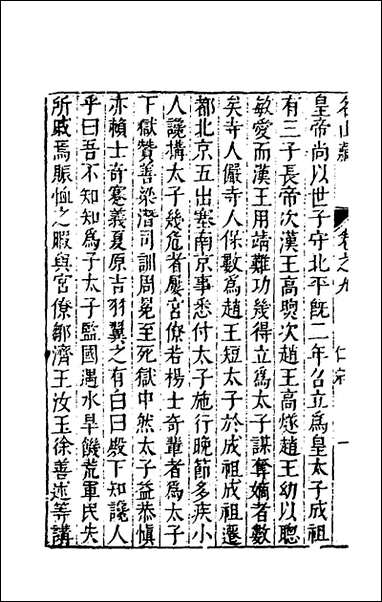 名山藏 卷之九 仁宗 一
皇帝尚以世子守北平旣二年召立爲皇太子成祖
有三子長帝次漢王高煦次趙王高燧趙王幼以聰
敏愛而漢王用靖難功幾得立爲太子謀奪嫡者數
矣寺人儼寺人保數爲趙王短太子於成祖成祖遷
都北京五出塞南京事悉付太子施行晚節多疾小
人讒搆太子幾危者屢宮僚若楊士奇輩者爲太子
下獄贊善梁潛司訓周冕至死獄中然太子益恭慎
亦賴士奇蹇義夏原吉羽翼之有白曰殿下知讒人
乎曰吾不知知爲子太子監國遇水旱饑荒軍民失
所戚焉賑恤之暇與宮僚鄒濟王汝玉徐善述等講